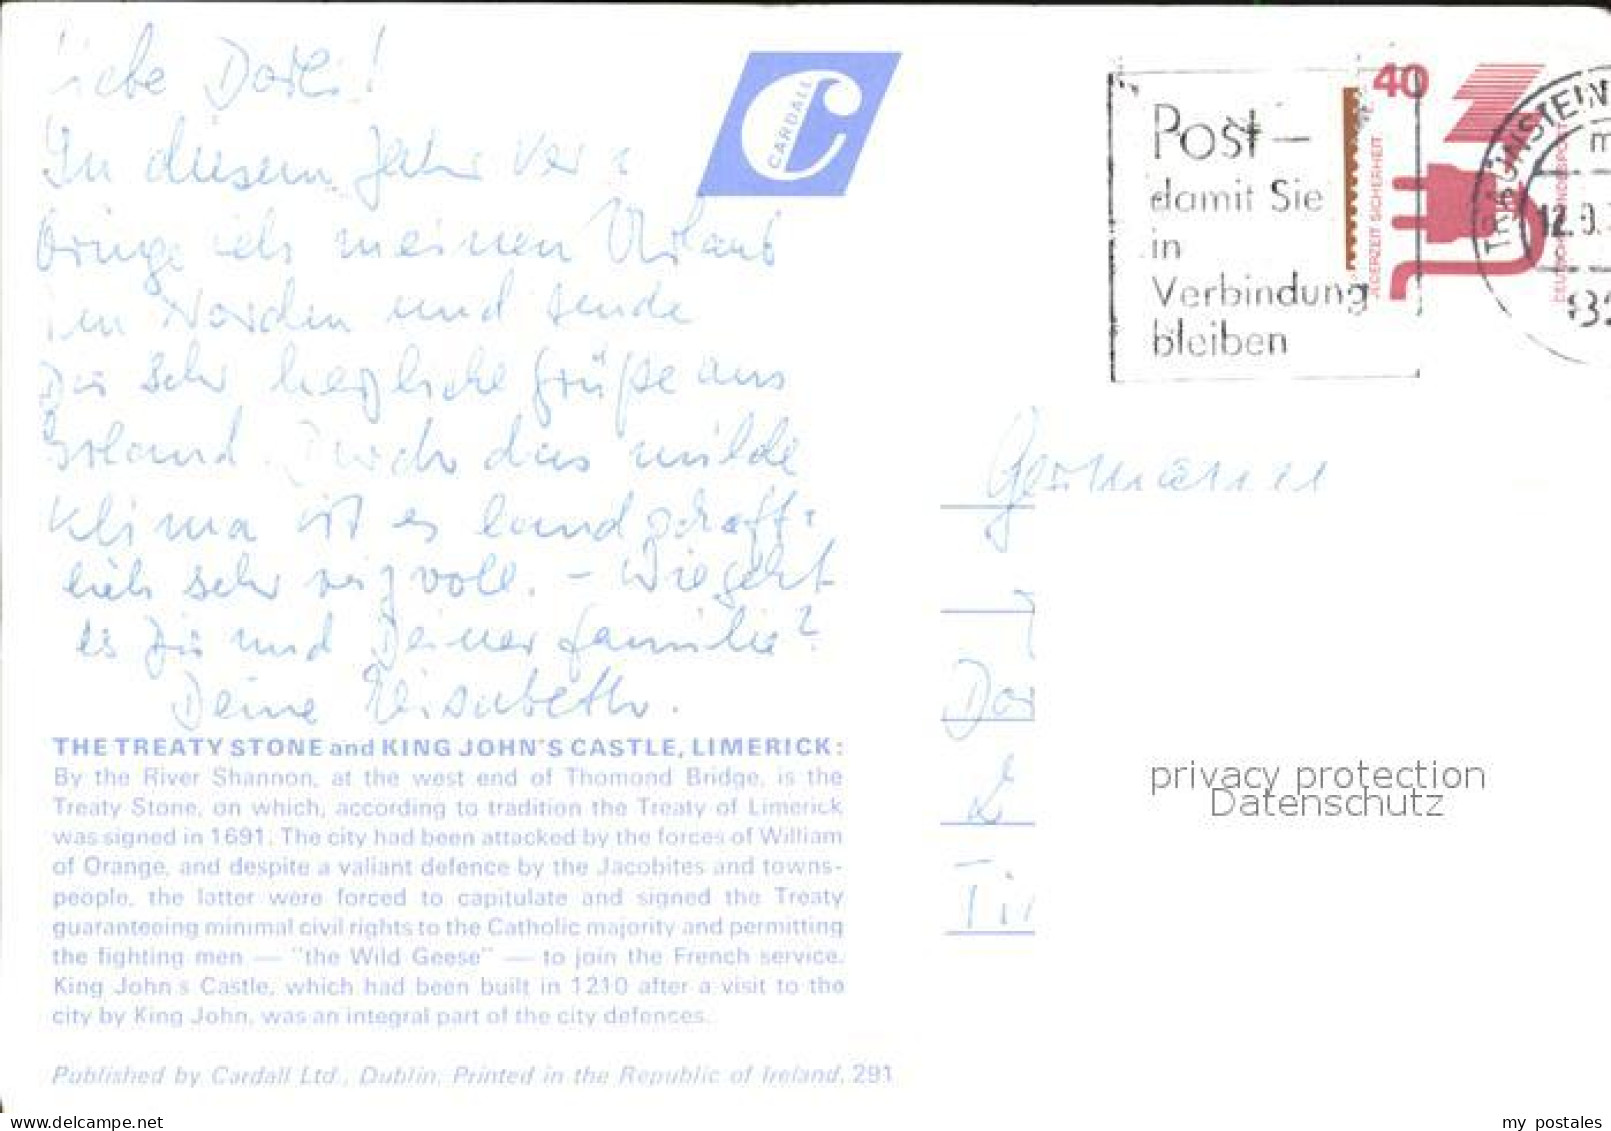 liebe Dorli!
In diesem Jahr ver=
bringe ich meinen Urlaub
im Norden und sende
Dir sehr herzliche Grüße aus
Irland. Durch das milde
Klima ist es landschaft=
lich sehr reizvoll. – Wie geht
es Dir und Deiner Familie?
Deine Elisabeth.
THE TREATY STONE and KING JOHN'S CASTLE, LIMERICK:
By the River Shannon, at the west end of Thomond Bridge, is the
Treaty Stone, on which, according to tradition the Treaty of Limerick
was signed in 1691. The city had been attacked by the forces of William
of Orange, and despite a valiant defence by the Jacobites and towns-
people, the latter were forced to capitulate and signed the Treaty
guaranteeing minimal civil rights to the Catholic majority and permitting
the fighting men — "the Wild Geese" — to join the French service.
King John's Castle, which had been built in 1210 after a visit to the
city by King John, was an integral part of the city defences.
Published by Cardall Ltd., Dublin. Printed in the Republic of Ireland. 291
CARDALL
Post –
damit Sie
in
Verbindung
bleiben
40
JEDERZEIT SICHERHEIT
DEUTSCHE BUNDESPOST
TRAUNSTEIN
12.9.
Germany
Dor
privacy protection
Datenschutz
my postales